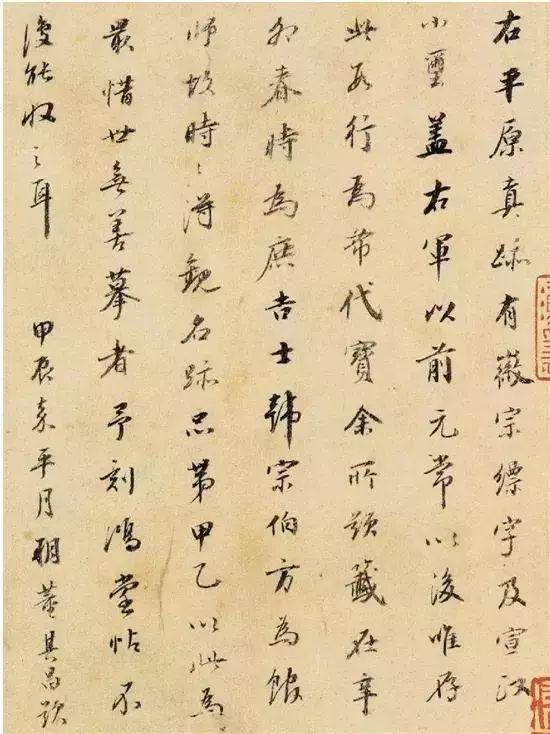 右平原真跡有徽宗縹字及宣和
小璽蓋右軍以前元常以後唯存
此數行為希代寶余所題籤在辛
卯春時為庶吉士韓宗伯方為館
師故時時得觀名跡品第甲乙以此為
最惜世無善摹者予刻鴻堂帖不
復能收之耳 甲辰嘉平月朔董其昌題